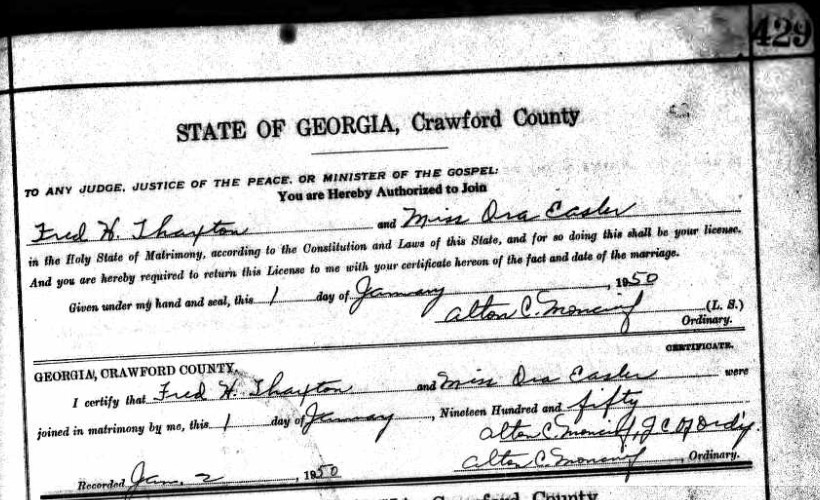 429
STATE OF GEORGIA, Crawford County
TO ANY JUDGE, JUSTICE OF THE PEACE, OR MINISTER OF THE GOSPEL:
You are Hereby Authorized to Join
Fred H. Thaxton and Miss Ora Easler
in the Holy State of Matrimony, according to the Constitution and Laws of this State, and for so doing this shall be your license.
And you are hereby required to return this License to me with your certificate hereon of the fact and date of the marriage.
Given under my hand and seal, this 1 day of January, 1950
Alton C. Moncrief (L. S.)
Ordinary.
CERTIFICATE.
GEORGIA, CRAWFORD COUNTY.
I certify that Fred H. Thaxton and Miss Ora Easler were
joined in matrimony by me, this 1 day of January, Nineteen Hundred and fifty
Alton C. Moncrief, J C of Ord'y.
Recorded Jan. 2, 1950 Alton C. Moncrief, Ordinary.
Crawford County